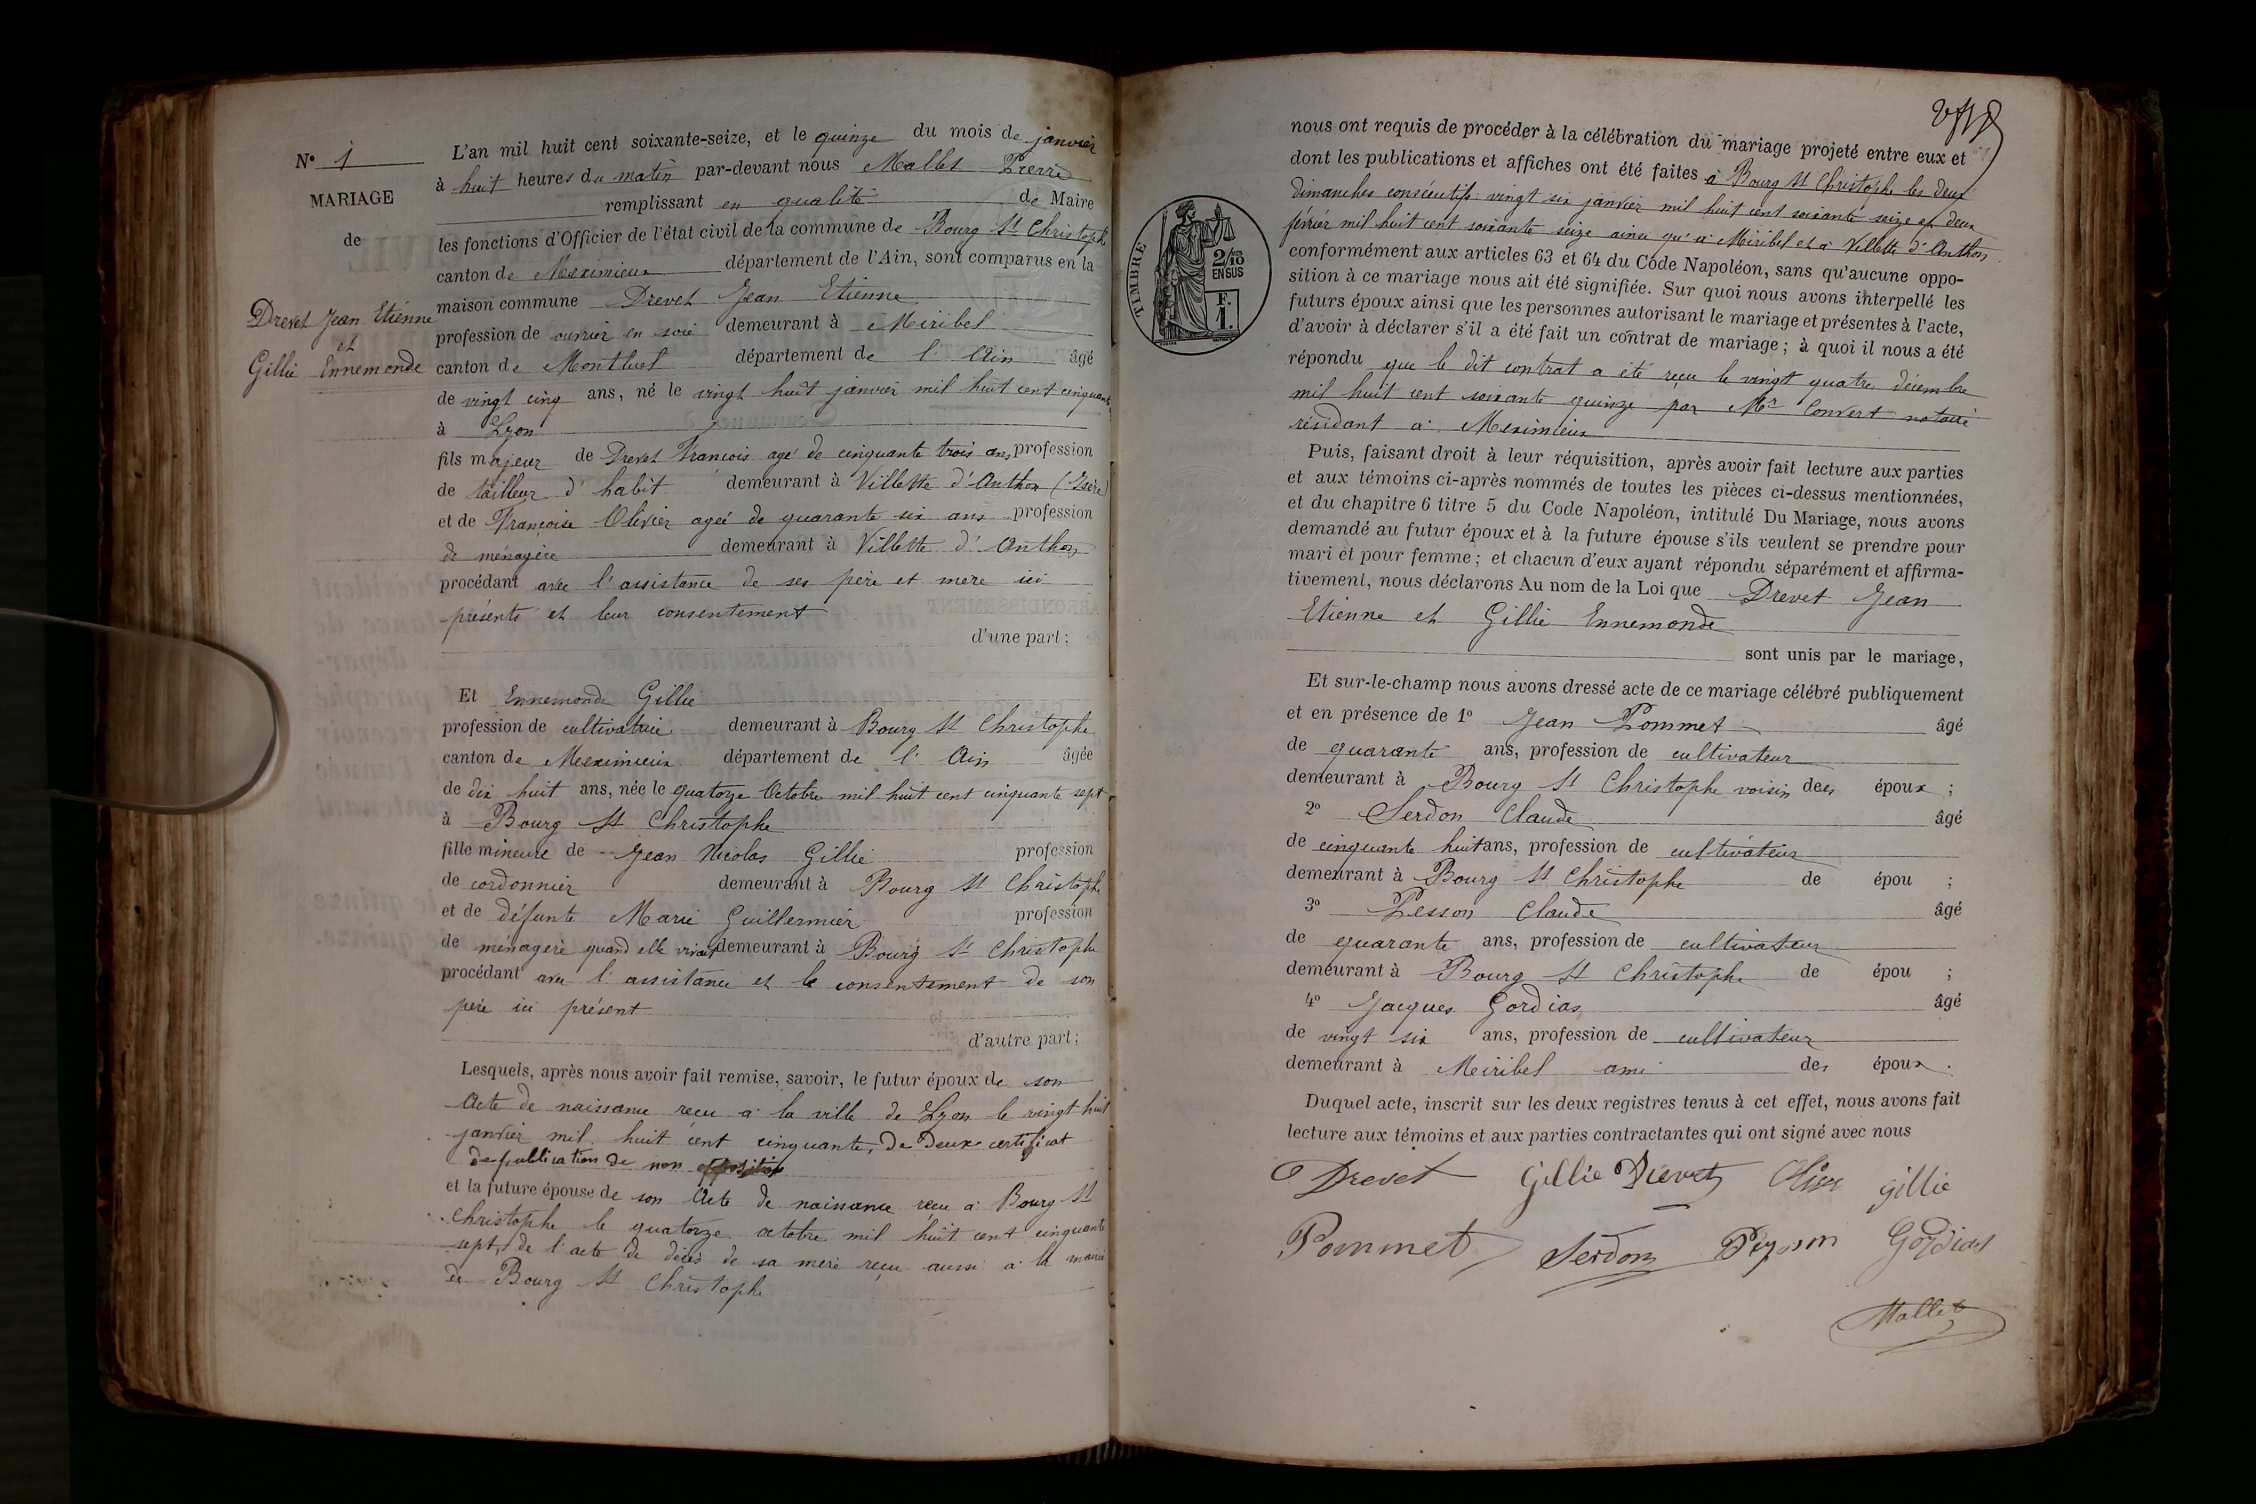 N° 1
MARIAGE
de
Drevet Jean Etienne
et
Gillie Ennemonde
L'an mil huit cent soixante-seize, et le quinze du mois de janvier
à huit heures du matin par-devant nous Mallet Pierre
remplissant en qualité de Maire
les fonctions d'Officier de l'état civil de la commune de Bourg St Christophe
canton de Meximieux département de l'Ain, sont comparus en la
maison commune Drevet Jean Etienne
profession de ouvrier en soie demeurant à Miribel
canton de Montluel département de l'Ain âgé
de vingt cinq ans, né le vingt huit janvier mil huit cent cinquante
à Lyon
fils majeur de Drevet François agé de cinquante trois ans profession
de tailleur d'habit demeurant à Villette d'Anthon (Isère)
et de Françoise Olivier agée de quarante six ans profession
de ménagère demeurant à Villette d'Anthon
procédant avec l'assistance de ses père et mere ici
présents et leur consentement
d'une part;
Et Ennemonde Gillie
profession de cultivatrice demeurant à Bourg St Christophe
canton de Meximieux département de l'Ain âgée
de dix huit ans, née le quatorze Octobre mil huit cent cinquante sept
à Bourg St Christophe
fille mineure de Jean Nicolas Gillie profession
de cordonnier demeurant à Bourg St Christophe
et de défunte Marie Guillermier profession
de ménagère quand elle vivait demeurant à Bourg St Christophe
procédant avec l'assistance et le consentement de son
père ici présent
d'autre part;
Lesquels, après nous avoir fait remise, savoir, le futur époux de son
Acte de naissance reçu à la ville de Lyon le vingt huit
janvier mil huit cent cinquante, De Deux certificat
de publication de non opposition
et la future épouse de son Acte de naissance reçu a Bourg St
Christophe le quatorze octobre mil huit cent cinquante
sept, de l'acte de décès de sa mère reçu aussi a la mairie
de Bourg St Christophe
TIMBRE
2/10
EN SUS
F.
1.
nous ont requis de procéder à la célébration du mariage projeté entre eux et
dont les publications et affiches ont été faites à Bourg St Christophe les deux
dimanches consécutifs vingt six janvier mil huit cent soixante seize et deux
février mil huit cent soixante seize ainsi qu'a Miribel et a Villette d'Anthon
conformément aux articles 63 et 64 du Code Napoléon, sans qu'aucune oppo-
sition à ce mariage nous ait été signifiée. Sur quoi nous avons interpellé les
futurs époux ainsi que les personnes autorisant le mariage et présentes à l'acte,
d'avoir à déclarer s'il a été fait un contrat de mariage; à quoi il nous a été
répondu que le dit contrat a été reçu le vingt quatre décembre
mil huit cent soixante quinze par Mr Convert notaire
résidant a Meximieux
Puis, faisant droit à leur réquisition, après avoir fait lecture aux parties
et aux témoins ci-après nommés de toutes les pièces ci-dessus mentionnées,
et du chapitre 6 titre 5 du Code Napoléon, intitulé Du Mariage, nous avons
demandé au futur époux et à la future épouse s'ils veulent se prendre pour
mari et pour femme; et chacun d'eux ayant répondu séparément et affirma-
tivement, nous déclarons Au nom de la Loi que Drevet Jean
Etienne et Gillie Ennemonde
sont unis par le mariage,
Et sur-le-champ nous avons dressé acte de ce mariage célébré publiquement
et en présence de 1° Jean Pommet âgé
de quarante ans, profession de cultivateur
demeurant à Bourg St Christophe voisin des époux;
2° Serdon Claude âgé
de cinquante huit ans, profession de cultivateur
demeurant à Bourg St Christophe de épou ;
3° Pesson Claude âgé
de quarante ans, profession de cultivateur
demeurant à Bourg St Christophe de épou ;
4° Jacques Gordias âgé
de vingt six ans, profession de cultivateur
demeurant à Miribel ami des époux.
Duquel acte, inscrit sur les deux registres tenus à cet effet, nous avons fait
lecture aux témoins et aux parties contractantes qui ont signé avec nous
Drevet Gillie Drevet Olivier Gillie
Pommet Serdon Peysson Gordias
Mallet